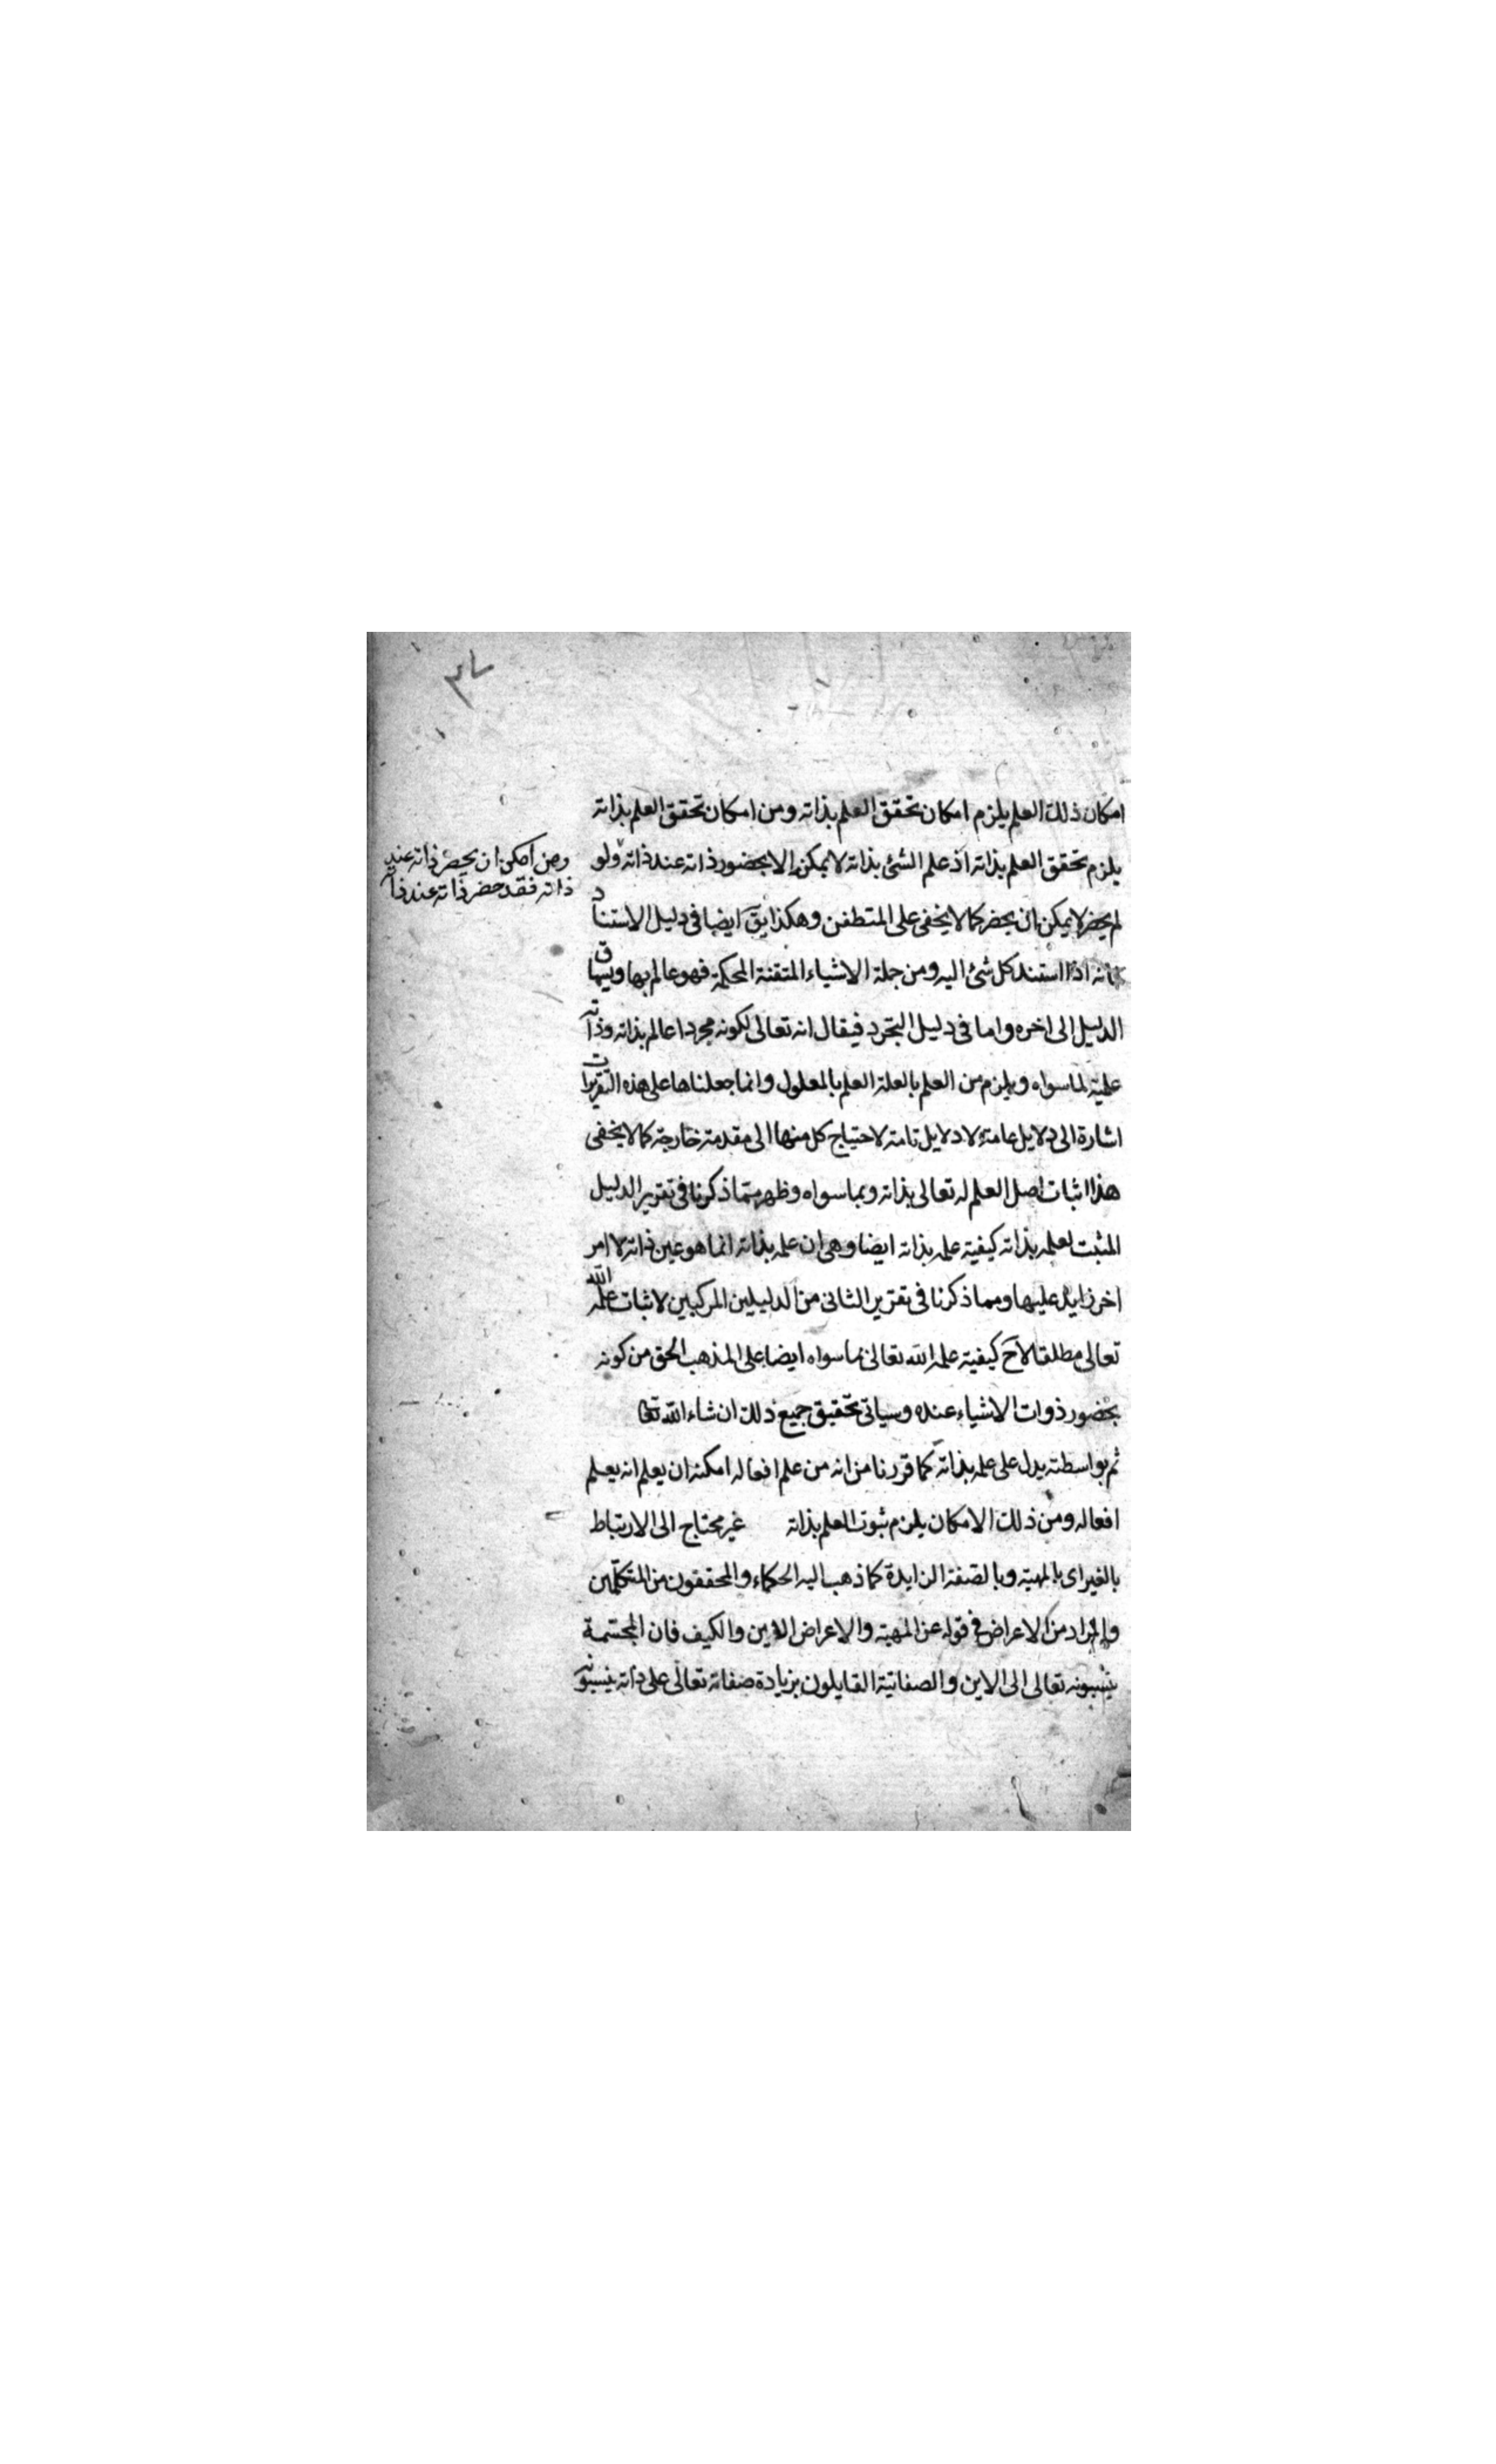 ٣٧
امكان ذلك العلم يلزم امكان تحقق العلم بذاته ومن امكان تحقق العلم بذاته
يلزم تحقق العلم بذاته اذ علم الشئ بذاته لا يمكن الا بحضور ذاته عند ذاته ولو
ومن امكن ان يحضر ذاته عند
ذاته فقد حضر ذاته عند ذاته
لم يحضر لا يمكن ان يحضر كما لا يخفى على المتطفن وهكذا يق ايضا فى دليل الاستناد
انه اذا استند كل شئ اليه ومن جملة الاشياء المتقنة المحكمة فهو عالم بها ويساق
الدليل الى اخره واما فى دليل التجرد فيقال انه تعالى لكونه مجردا عالم بذاته وذاته
علية لماسواه ويلزم من العلم بالعلة العلم بالمعلول وانما جعلناها على هذه التقريرات
اشارة الى دلايل عامة لا دلايل تامة لاحتياج كل منها الى مقدمة خارجة كما لا يخفى
هذا اثبات اصل العلم له تعالى بذاته وبما سواه وظهر مما ذكرنا فى تقرير الدليل
المثبت لعلمه بذاته كيفية علمه بذاته ايضا وهى ان علمه بذاته انما هو عين ذاته لا امر
اخر زايد عليها ومما ذكرنا فى تقرير الثانى من الدليلين المركبين لاثبات علم الله
تعالى مطلقا لاح كيفية علم الله تعالى بما سواه ايضا على المذهب الحق من كونه
بحضور ذوات الاشياء عنده وسياتى تحقيق جميع ذلك ان شاء الله تعا
ثم بواسطته يدل على علمه بذاته كما قررنا من انه من علم افعاله امكنه ان يعلم انه يعلم
افعاله ومن ذلك الامكان يلزم ثبوت العلم بذاته غير محتاج الى الارتباط
بالغير اى بالمهية وبالصفة الزايدة كما ذهب اليه الحكماء والمحققون من المتكلمين
والمراد من الاعراض فى قوله عن المهية والاعراض الاين والكيف فان المجسمة
ينسبونه تعالى الى الاين والصفاتية القايلون بزيادة صفاته تعالى على ذاته ينسبونه